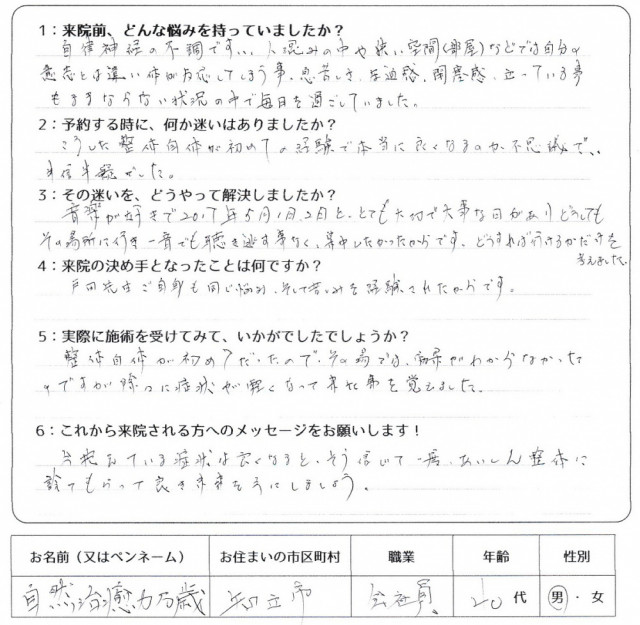 1：来院前、どんな悩みを持っていましたか？
自律神経の不調です… 人混みの中や狭い空間(部屋)などでは自分の
意志とは違い体が反応してしまう事、息苦しさ、圧迫感、閉塞感、立っている事
もままならない状況の中で毎日を過ごしていました。
2：予約する時に、何か迷いはありましたか？
こうした整体自体が初めての経験で本当に良くなるのか不思議で、
半信半疑でした。
3：その迷いを、どうやって解決しましたか？
音楽が好きで2017年5月1日、2日と、とても大切で大事な日がありどうしても
その場所に行き一音でも聴き逃す事なく、集中したかったからです。どうすれば行けるかだけを
考えました。
4：来院の決め手となったことは何ですか？
戸田先生ご自身も同じ悩み、そして苦しみを経験されたからです。
5：実際に施術を受けてみて、いかがでしたでしょうか？
整体自体が初めてだったので、その場では、効果がわからなかった
のですが除々に症状が軽くなって来た事を覚えました。
6：これから来院される方へのメッセージをお願いします！
今抱えている症状は良くなると、そう信じて一度、あいしん整体に
診てもらって良き未来を手にしましょう。
お名前（又はペンネーム） お住まいの市区町村 職業 年齢 性別
自然治癒力万歳 知立市 会社員 20代 男・女